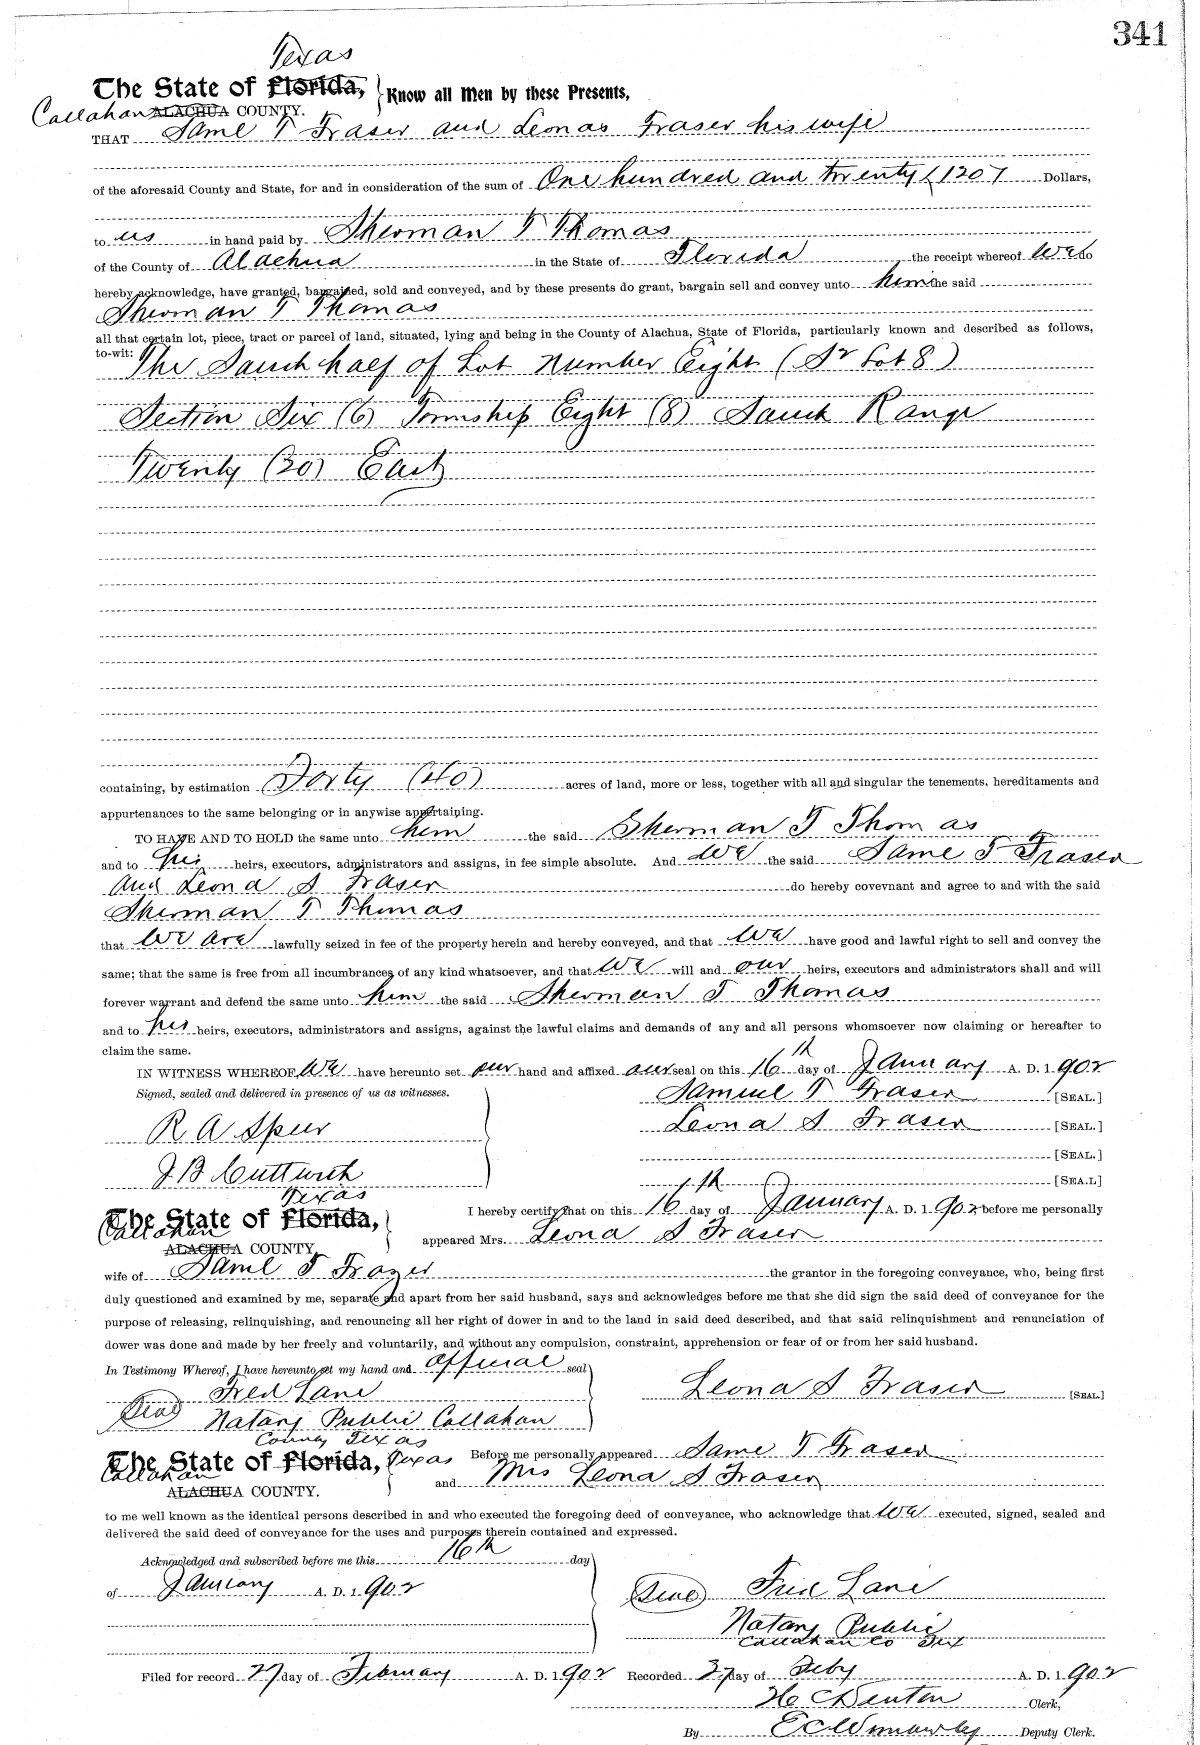 341
Texas
The State of Florida, Know all Men by these Presents,
Callahan ALACHUA COUNTY.
THAT Saml T Fraser and Leonas Fraser his wife
of the aforesaid County and State, for and in consideration of the sum of One hundred and twenty (120) Dollars,
to us in hand paid by Sherman T Thomas
of the County of Alachua in the State of Florida the receipt whereof We do
hereby acknowledge, have granted, bargained, sold and conveyed, and by these presents do grant, bargain sell and convey unto him the said
Sherman T Thomas
all that certain lot, piece, tract or parcel of land, situated, lying and being in the County of Alachua, State of Florida, particularly known and described as follows,
to-wit: The South half of Lot Number Eight (S½ Lot 8)
Section Six (6) Township Eight (8) South Range
Twenty (20) East
containing, by estimation Forty (40) acres of land, more or less, together with all and singular the tenements, hereditaments and
appurtenances to the same belonging or in anywise appertaining.
TO HAVE AND TO HOLD the same unto him the said Sherman T Thomas
and to his heirs, executors, administrators and assigns, in fee simple absolute. And We the said Saml T Fraser
and Leona S Fraser do hereby covevnant and agree to and with the said
Sherman T Thomas
that We are lawfully seized in fee of the property herein and hereby conveyed, and that We have good and lawful right to sell and convey the
same; that the same is free from all incumbrances of any kind whatsoever, and that We will and our heirs, executors and administrators shall and will
forever warrant and defend the same unto him the said Sherman T Thomas
and to his heirs, executors, administrators and assigns, against the lawful claims and demands of any and all persons whomsoever now claiming or hereafter to
claim the same.
IN WITNESS WHEREOF, We have hereunto set our hand and affixed our seal on this 16th day of January A. D. 1902
Signed, sealed and delivered in presence of us as witnesses. Samuel T Fraser [SEAL.]
R A Speer Leona S Fraser [SEAL.]
[SEAL.]
J B [SEA.L]
Texas
The State of Florida, I hereby certify that on this 16th day of January A. D. 1902 before me personally
Callahan
ALACHUA COUNTY, appeared Mrs. Leona S Fraser
wife of Saml T Frazer the grantor in the foregoing conveyance, who, being first
duly questioned and examined by me, separate and apart from her said husband, says and acknowledges before me that she did sign the said deed of conveyance for the
purpose of releasing, relinquishing, and renouncing all her right of dower in and to the land in said deed described, and that said relinquishment and renunciation of
dower was done and made by her freely and voluntarily, and without any compulsion, constraint, apprehension or fear of or from her said husband.
In Testimony Whereof, I have hereunto set my hand and official seal
Fred Lane Leona S Fraser [SEAL.]
Seal Notary Public Callahan
County Texas
The State of Florida, Texas Before me personally appeared Saml T Fraser
Callahan and Mrs Leona S Fraser
ALACHUA COUNTY.
to me well known as the identical persons described in and who executed the foregoing deed of conveyance, who acknowledge that We executed, signed, sealed and
delivered the said deed of conveyance for the uses and purposes therein contained and expressed.
Acknowledged and subscribed before me this 16th day
of January A. D. 1902 Seal Fred Lane
Notary Public
Callahan Co Tex
Filed for record 27 day of February A. D. 1902 Recorded 27 day of Feby A. D. 1902
H C Denton Clerk,
By Deputy Clerk.